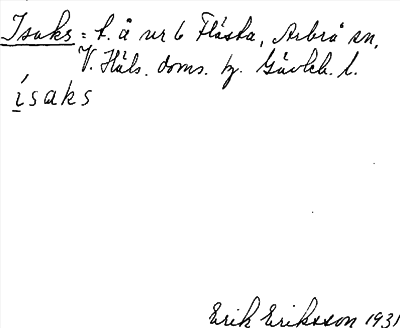 Isaks = f. å nr 6 Flästa, Arbrå sn,
V. Häls. doms. hj. Gävleb. l.
ísaks
Erik Eriksson 1931